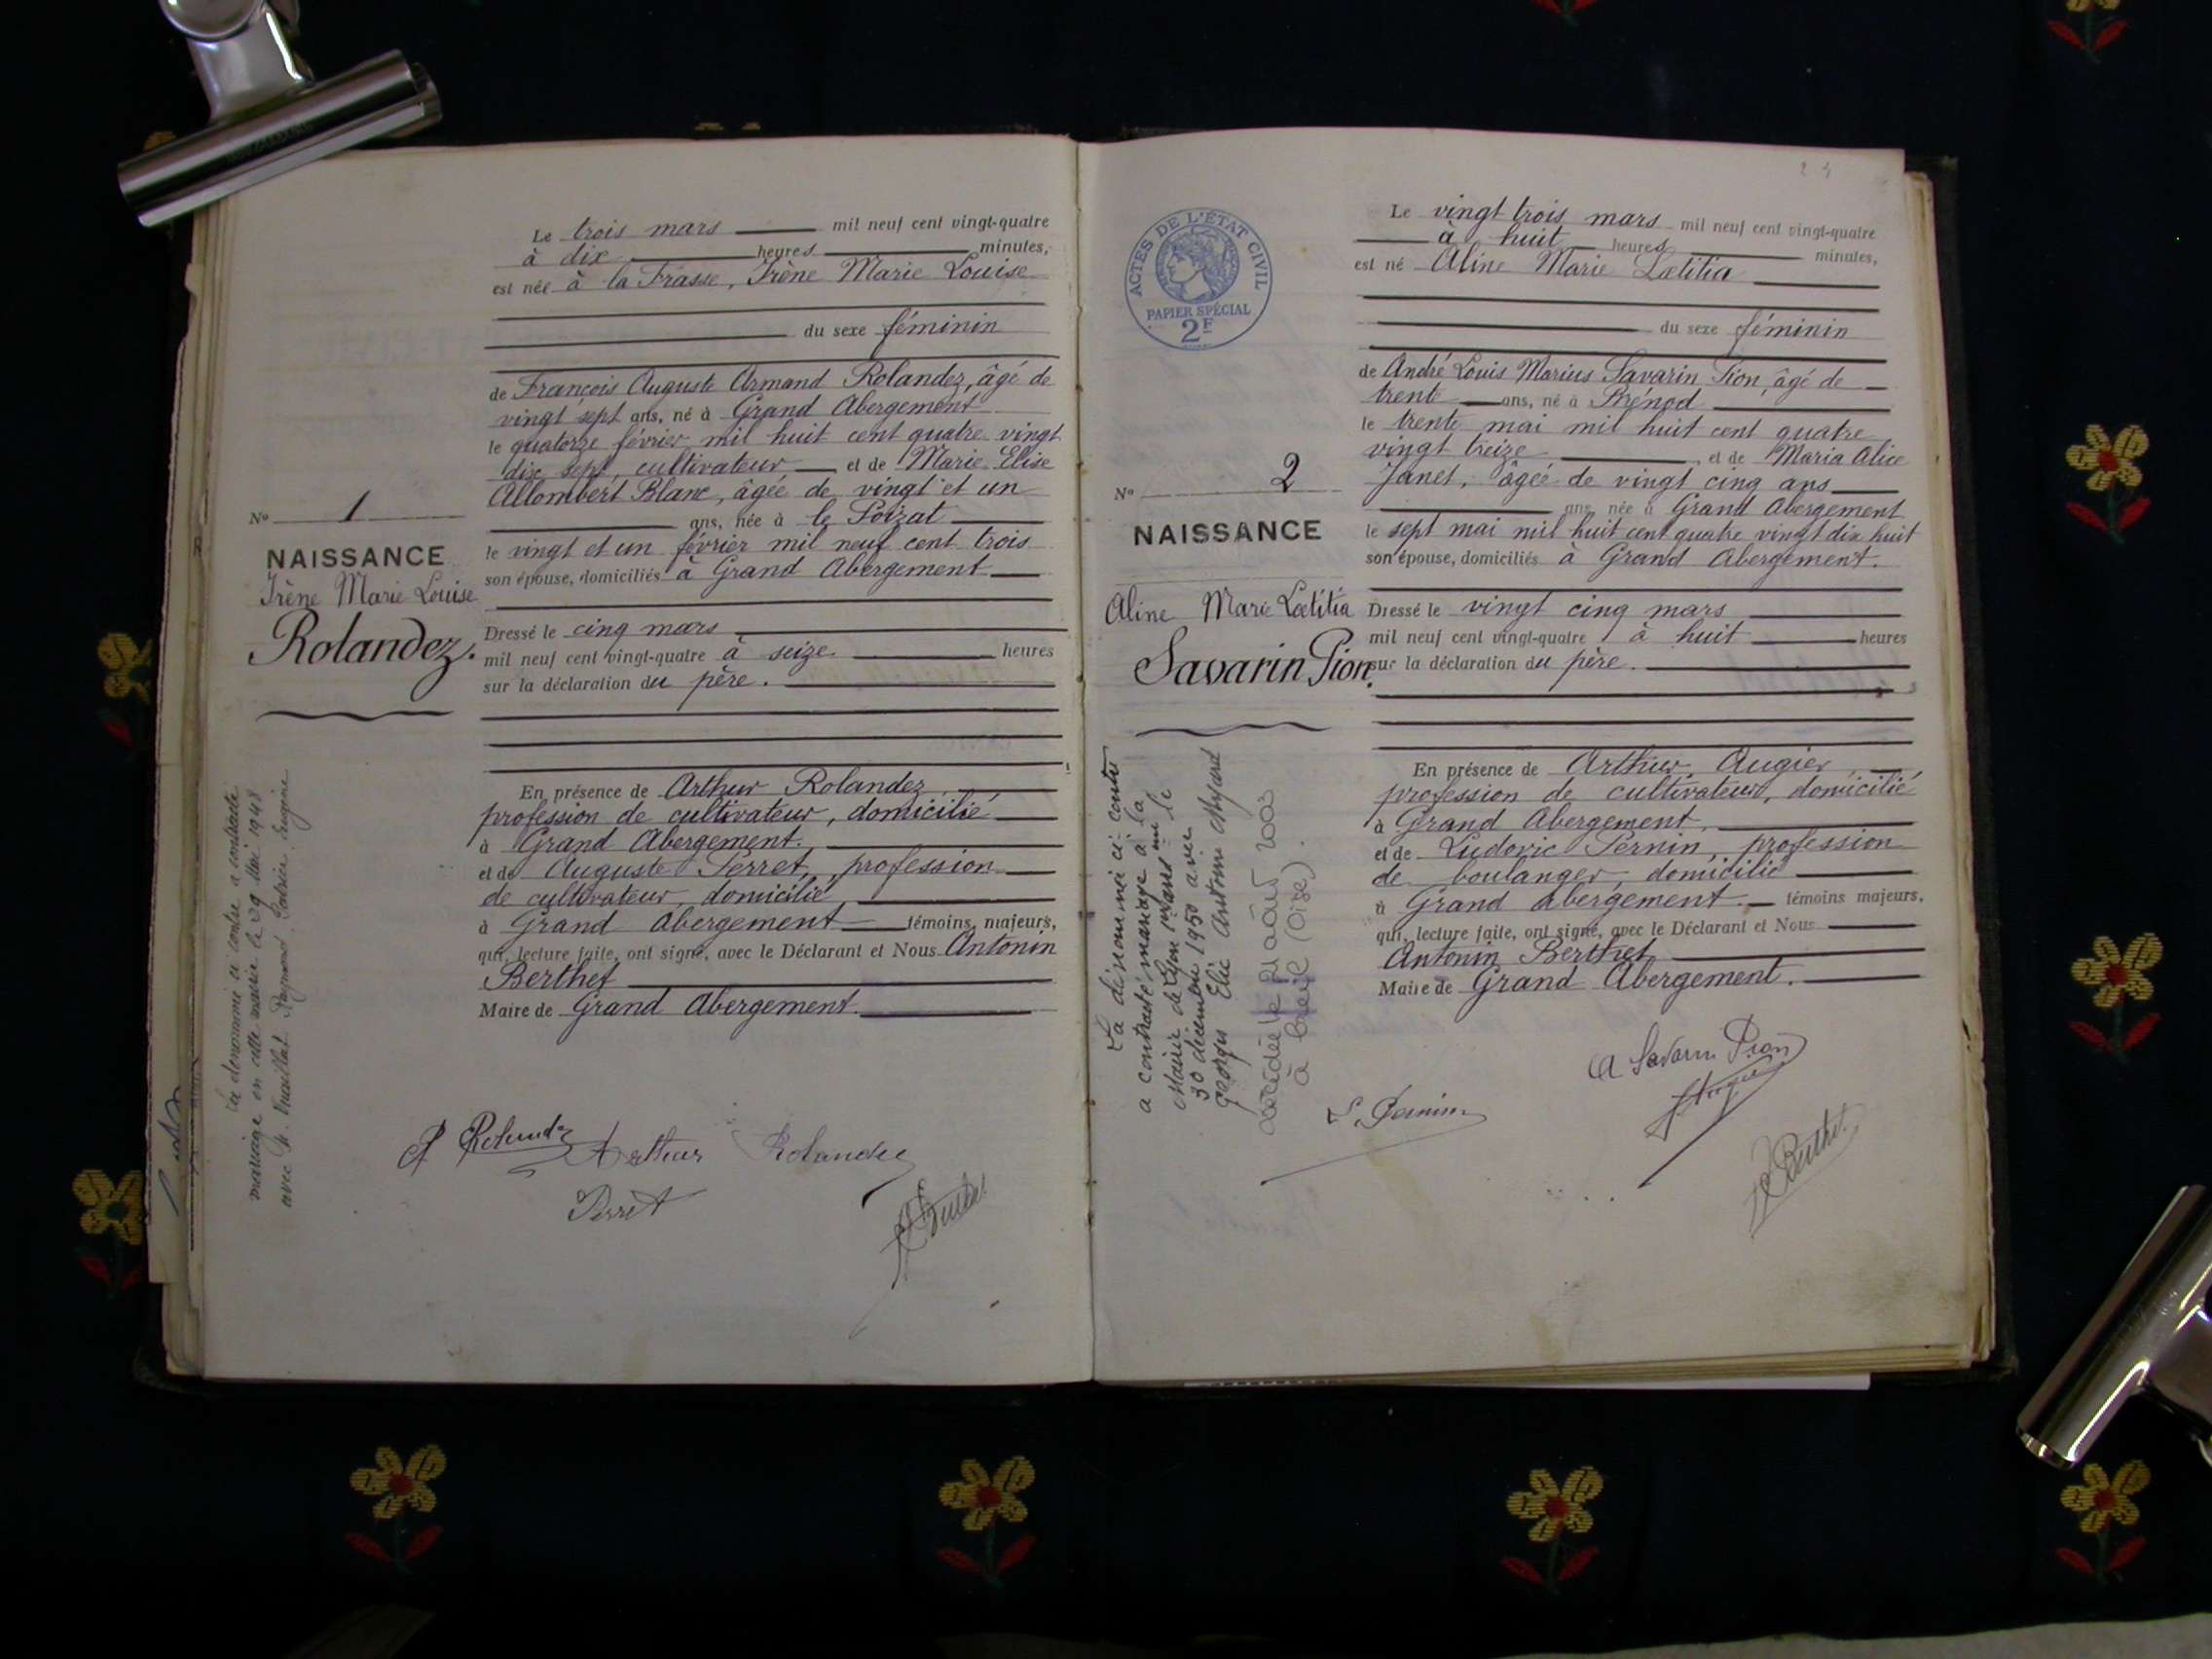 Le trois mars mil neuf cent vingt-quatre
à dix heures minutes,
est née à la Frasse, Irène Marie Louise
du sexe féminin
de François Auguste Armand Rolandez, âgé de
vingt sept ans, né à Grand Abergement
le quatorze février mil huit cent quatre vingt
dix sept, cultivateur et de Marie Elise
Allombert Blanc, âgée de vingt et un
ans, née à le Poizat
le vingt et un février mil neuf cent trois
son épouse, domiciliés à Grand Abergement
Dressé le cinq mars
mil neuf cent vingt-quatre à seize heures
sur la déclaration du père.
En présence de Arthur Rolandez
profession de cultivateur, domicilié
à Grand Abergement.
et de Auguste Perret, profession
de cultivateur, domicilié
à Grand Abergement témoins majeurs,
qui, lecture faite, ont signé, avec le Déclarant et Nous Antonin
Berthet
Maire de Grand Abergement.
No 1
NAISSANCE
Irène Marie Louise
Rolandez.
La dénommée ci contre a contracté
mariage en cette mairie le 29 Mai 1948
avec Raymond Eugène
Rolandez Arthur Rolandez
Perret
24
ACTES DE L'ÉTAT CIVIL
PAPIER SPÉCIAL
2F
Le vingt trois mars mil neuf cent vingt-quatre
à huit heures minutes,
est né Aline Marie Lætitia
du sexe féminin
de André Louis Marius Savarin Pion, âgé de
trente ans, né à Brénod
le trente mai mil huit cent quatre
vingt treize et de Maria Alice
Janet, âgée de vingt cinq ans
ans, née à Grand Abergement
le sept mai mil huit cent quatre vingt dix huit
son épouse, domiciliés à Grand Abergement.
Dressé le vingt cinq mars
mil neuf cent vingt-quatre à huit heures
sur la déclaration du père.
En présence de Arthur Augier,
profession de cultivateur, domicilié
à Grand Abergement,
et de Ludovic Pernin, profession
de boulanger, domicilié
à Grand Abergement. témoins majeurs,
qui, lecture faite, ont signé, avec le Déclarant et Nous
Antonin Berthet
Maire de Grand Abergement.
No 2
NAISSANCE
Aline Marie Lætitia
Savarin Pion.
La dénommée ci contre
a contracté mariage à la
Mairie de Lyon le
30 décembre 1950 avec
Georges Elie Antoine Mygard
décédée le 21 août 2003
à Creil (Oise).
A Savarin Pion
L. Pernin
A Berthet